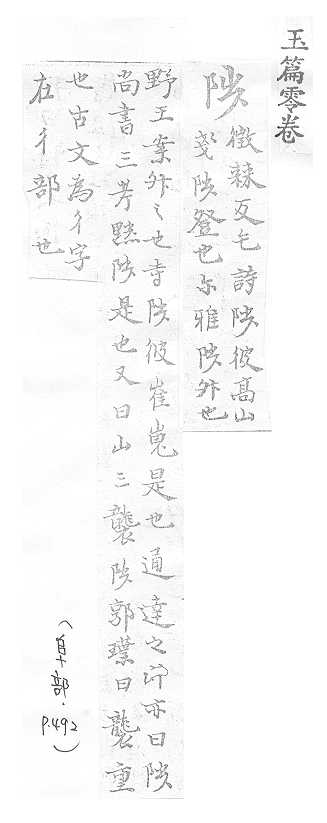 玉篇零卷
陟
徵棘反毛詩陟彼髙山
箋陟登也尓雅陟升也
野王案升之也寺陟彼崔嵬是也通達之亦曰陟
尚書三考黜陟是也又曰山三襲陟郭璞曰襲重
也古文為彳字
在彳部也
(阜部・P.492)